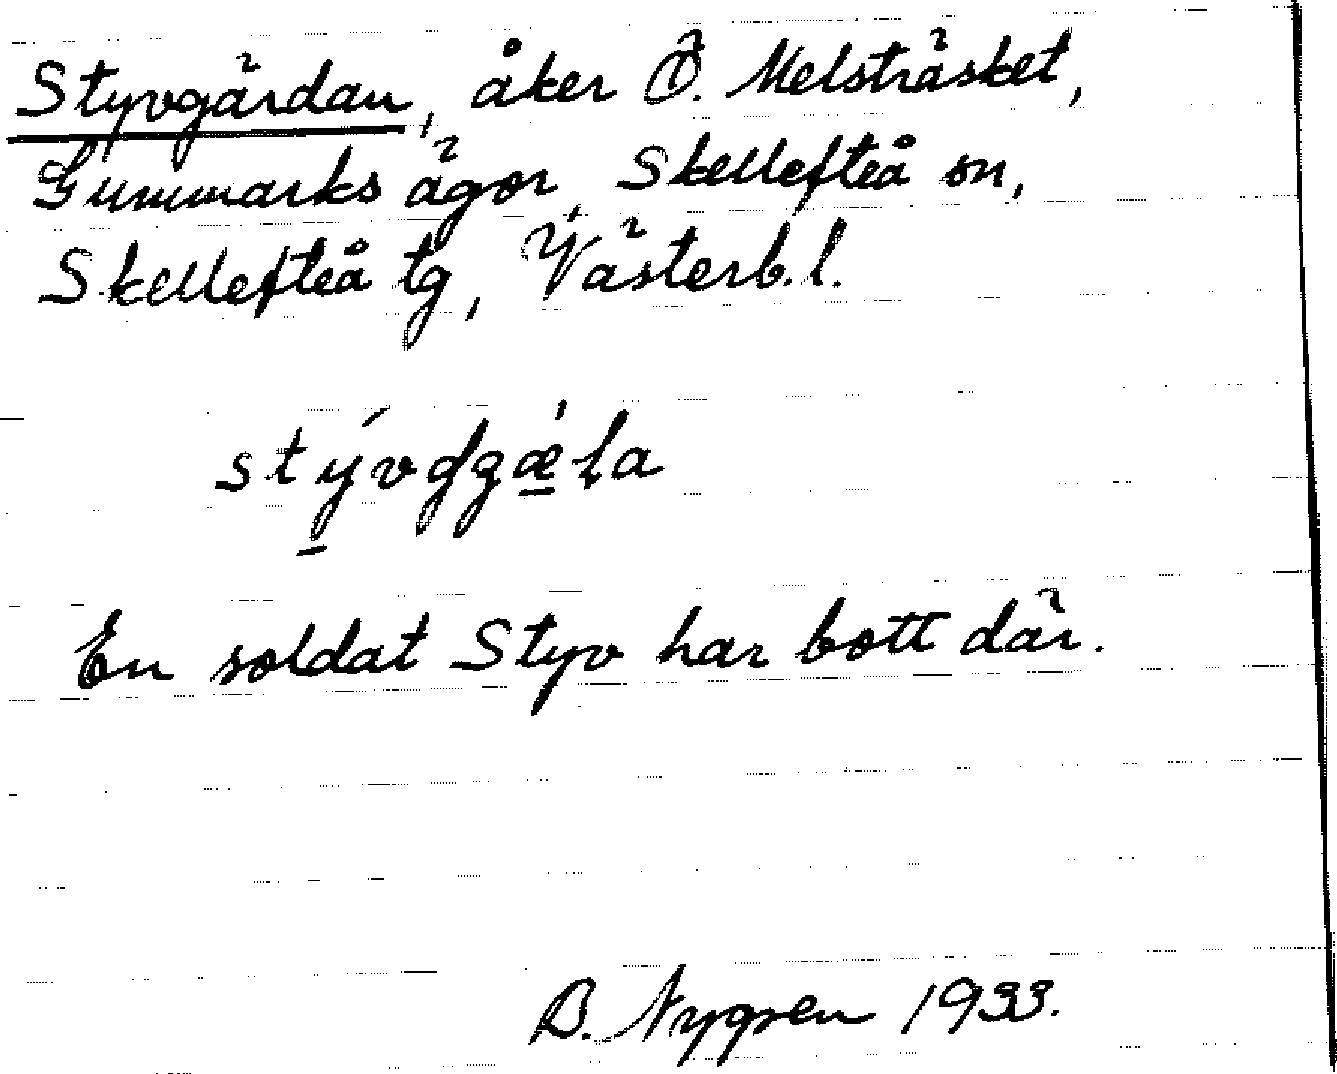 Styvgärdan, åker Ö. Melsträsket,
Gummarks ägor, Skellefteå sn,
Skellefteå tg, Västerb. l.
En soldat Styv har bott där.
B. Nygren 1933.